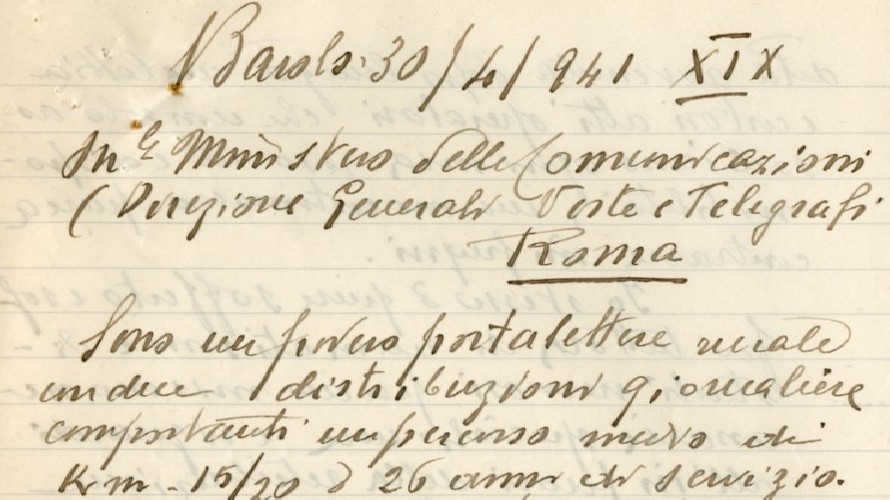 Barolo. 30/4/941 XIX
On.le Ministero delle Comunicazioni
(Direzione Generale Poste e Telegrafi
Roma
Sono un povero portalettere rurale
con due distribuzioni giornaliere
comportanti un percorso medio di
Km - 15/20 26 anni di servizio.